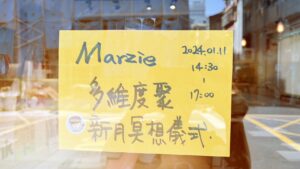 Marzie
2024.01.11
14:30
-
17:00
多維度聚
新月冥想儀式.